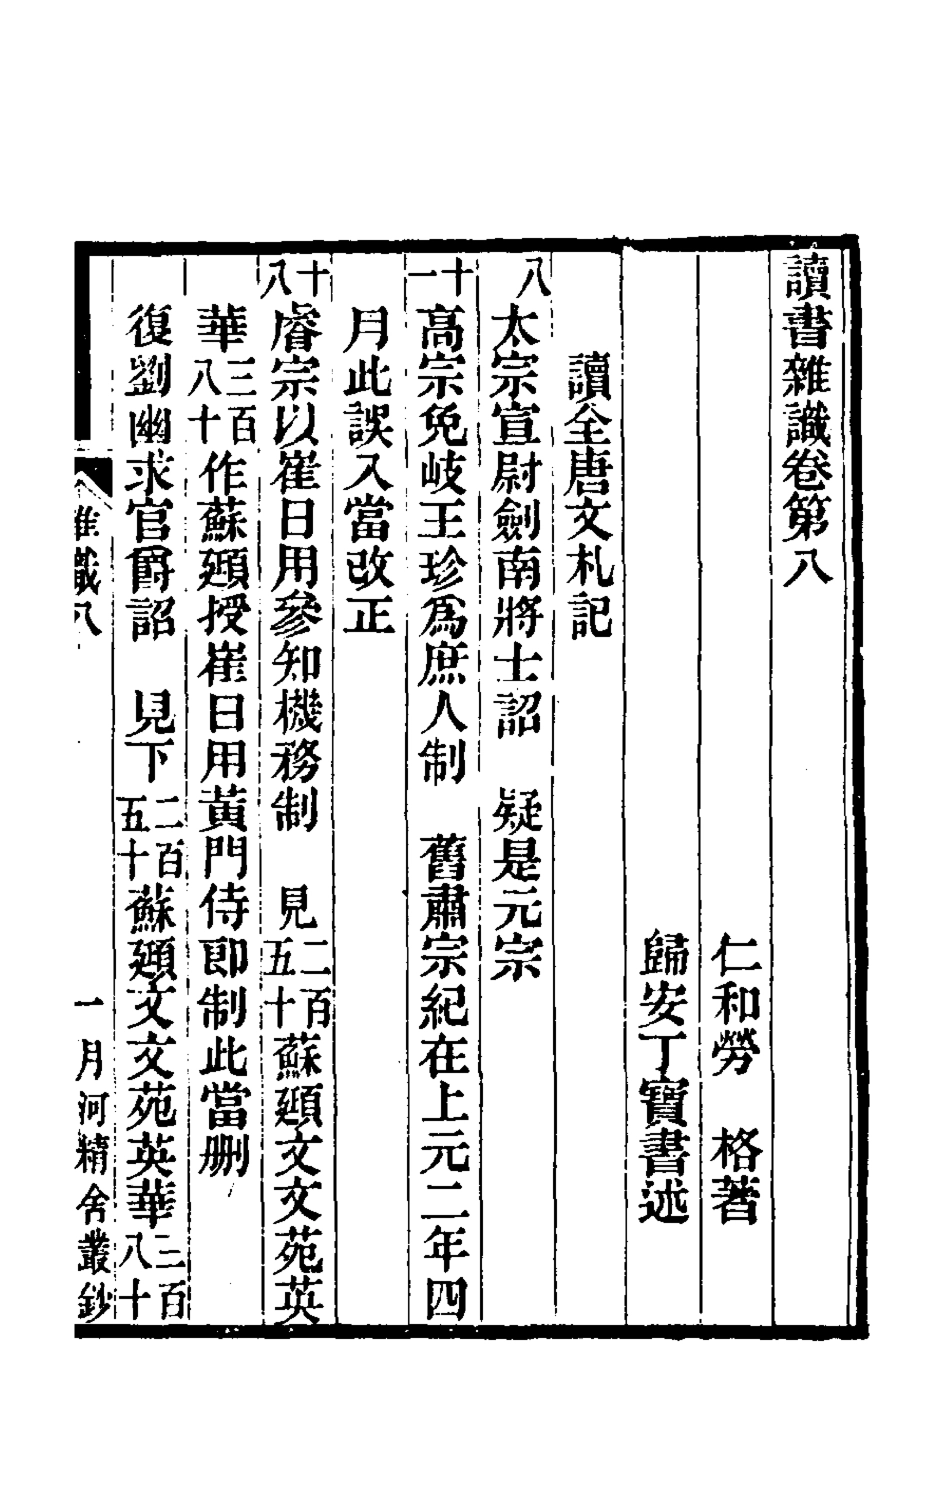 讀書雜識卷第八
仁和勞　格著
歸安丁寶書述
讀全唐文札記
八　太宗宣尉劍南將士詔　疑是元宗
十一　高宗免岐王珍爲庶人制　舊肅宗紀在上元二年四
月此誤入當改正
十八　睿宗以崔日用參知機務制　見二百五十蘇頲文文苑英
華三百八十作蘇頲授崔日用黃門侍郎制此當删
復劉幽求官爵詔　見下二百五十蘇頲文文苑英華三百八十
雜識八　一　月河精舍叢鈔